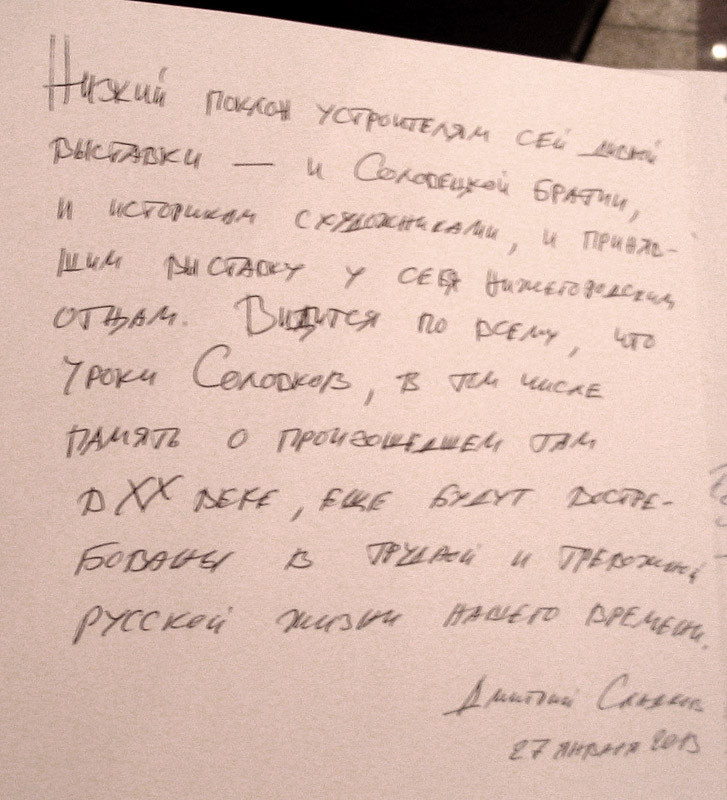 Низкий поклон устроителям сей
выставки — и Соловецкой братии,
и историкам с художниками, и приняв-
шим выставку у себя нижегородским
отцам. Видится по всему, что
уроки Соловков, в том числе
память о произошедшем там
в XX веке, еще будут востре-
бованы в трудной и тревожной
русской жизни нашего времени.
Дмитрий
27 января 2013